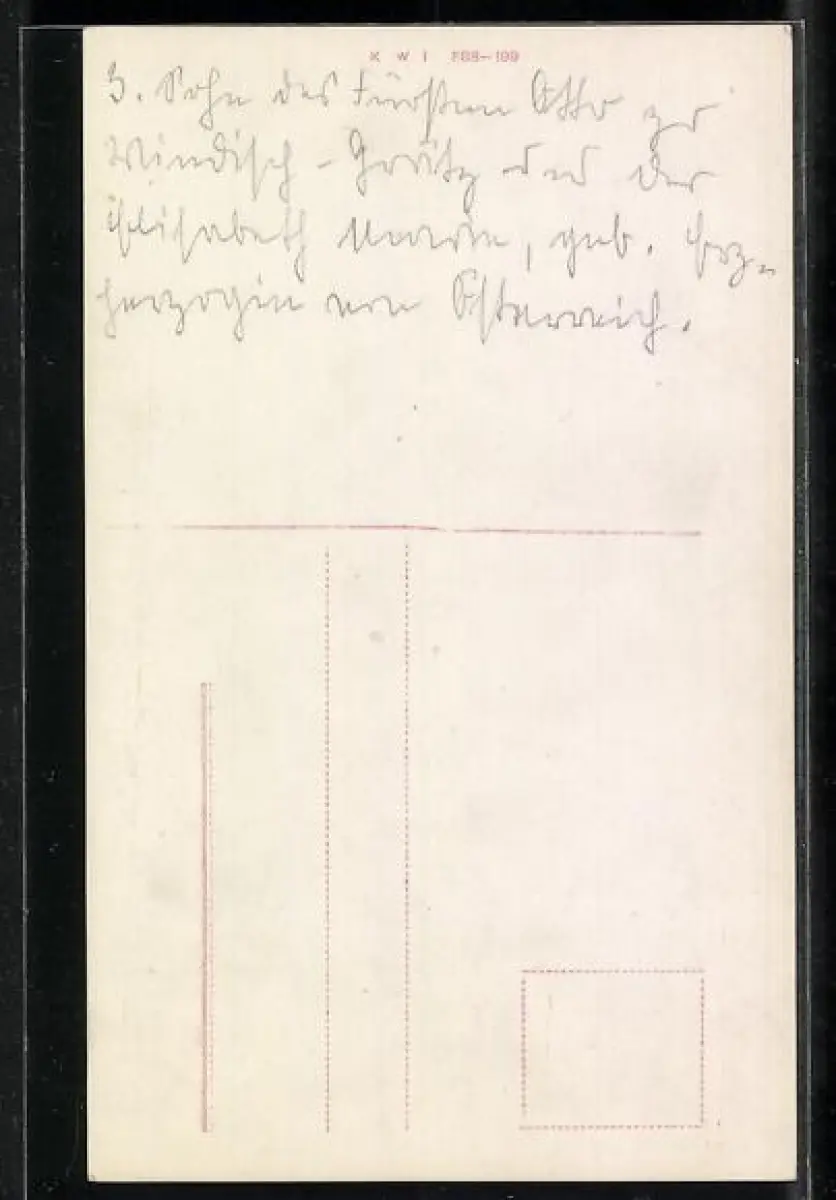 K W I 888–199
3. Sohn des Fürsten Otto zu
Windisch-Graetz und der
Elisabeth Marie, geb. Erz-
herzogin von Österreich.